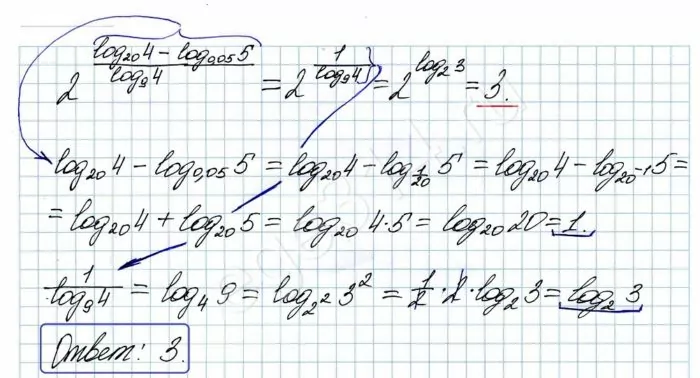 2^((log₂₀4 − log₀,₀₅5)/(log₉4)) = 2^(1/(log₉4)) = 2^(log₂3) = 3.
log₂₀4 − log₀,₀₅5 = log₂₀4 − log_(1/20)5 = log₂₀4 − log_(20⁻¹)5 =
= log₂₀4 + log₂₀5 = log₂₀4·5 = log₂₀20 = 1.
1/(log₉4) = log₄9 = log_(2²)3² = 1/2·2·log₂3 = log₂3
Ответ: 3.